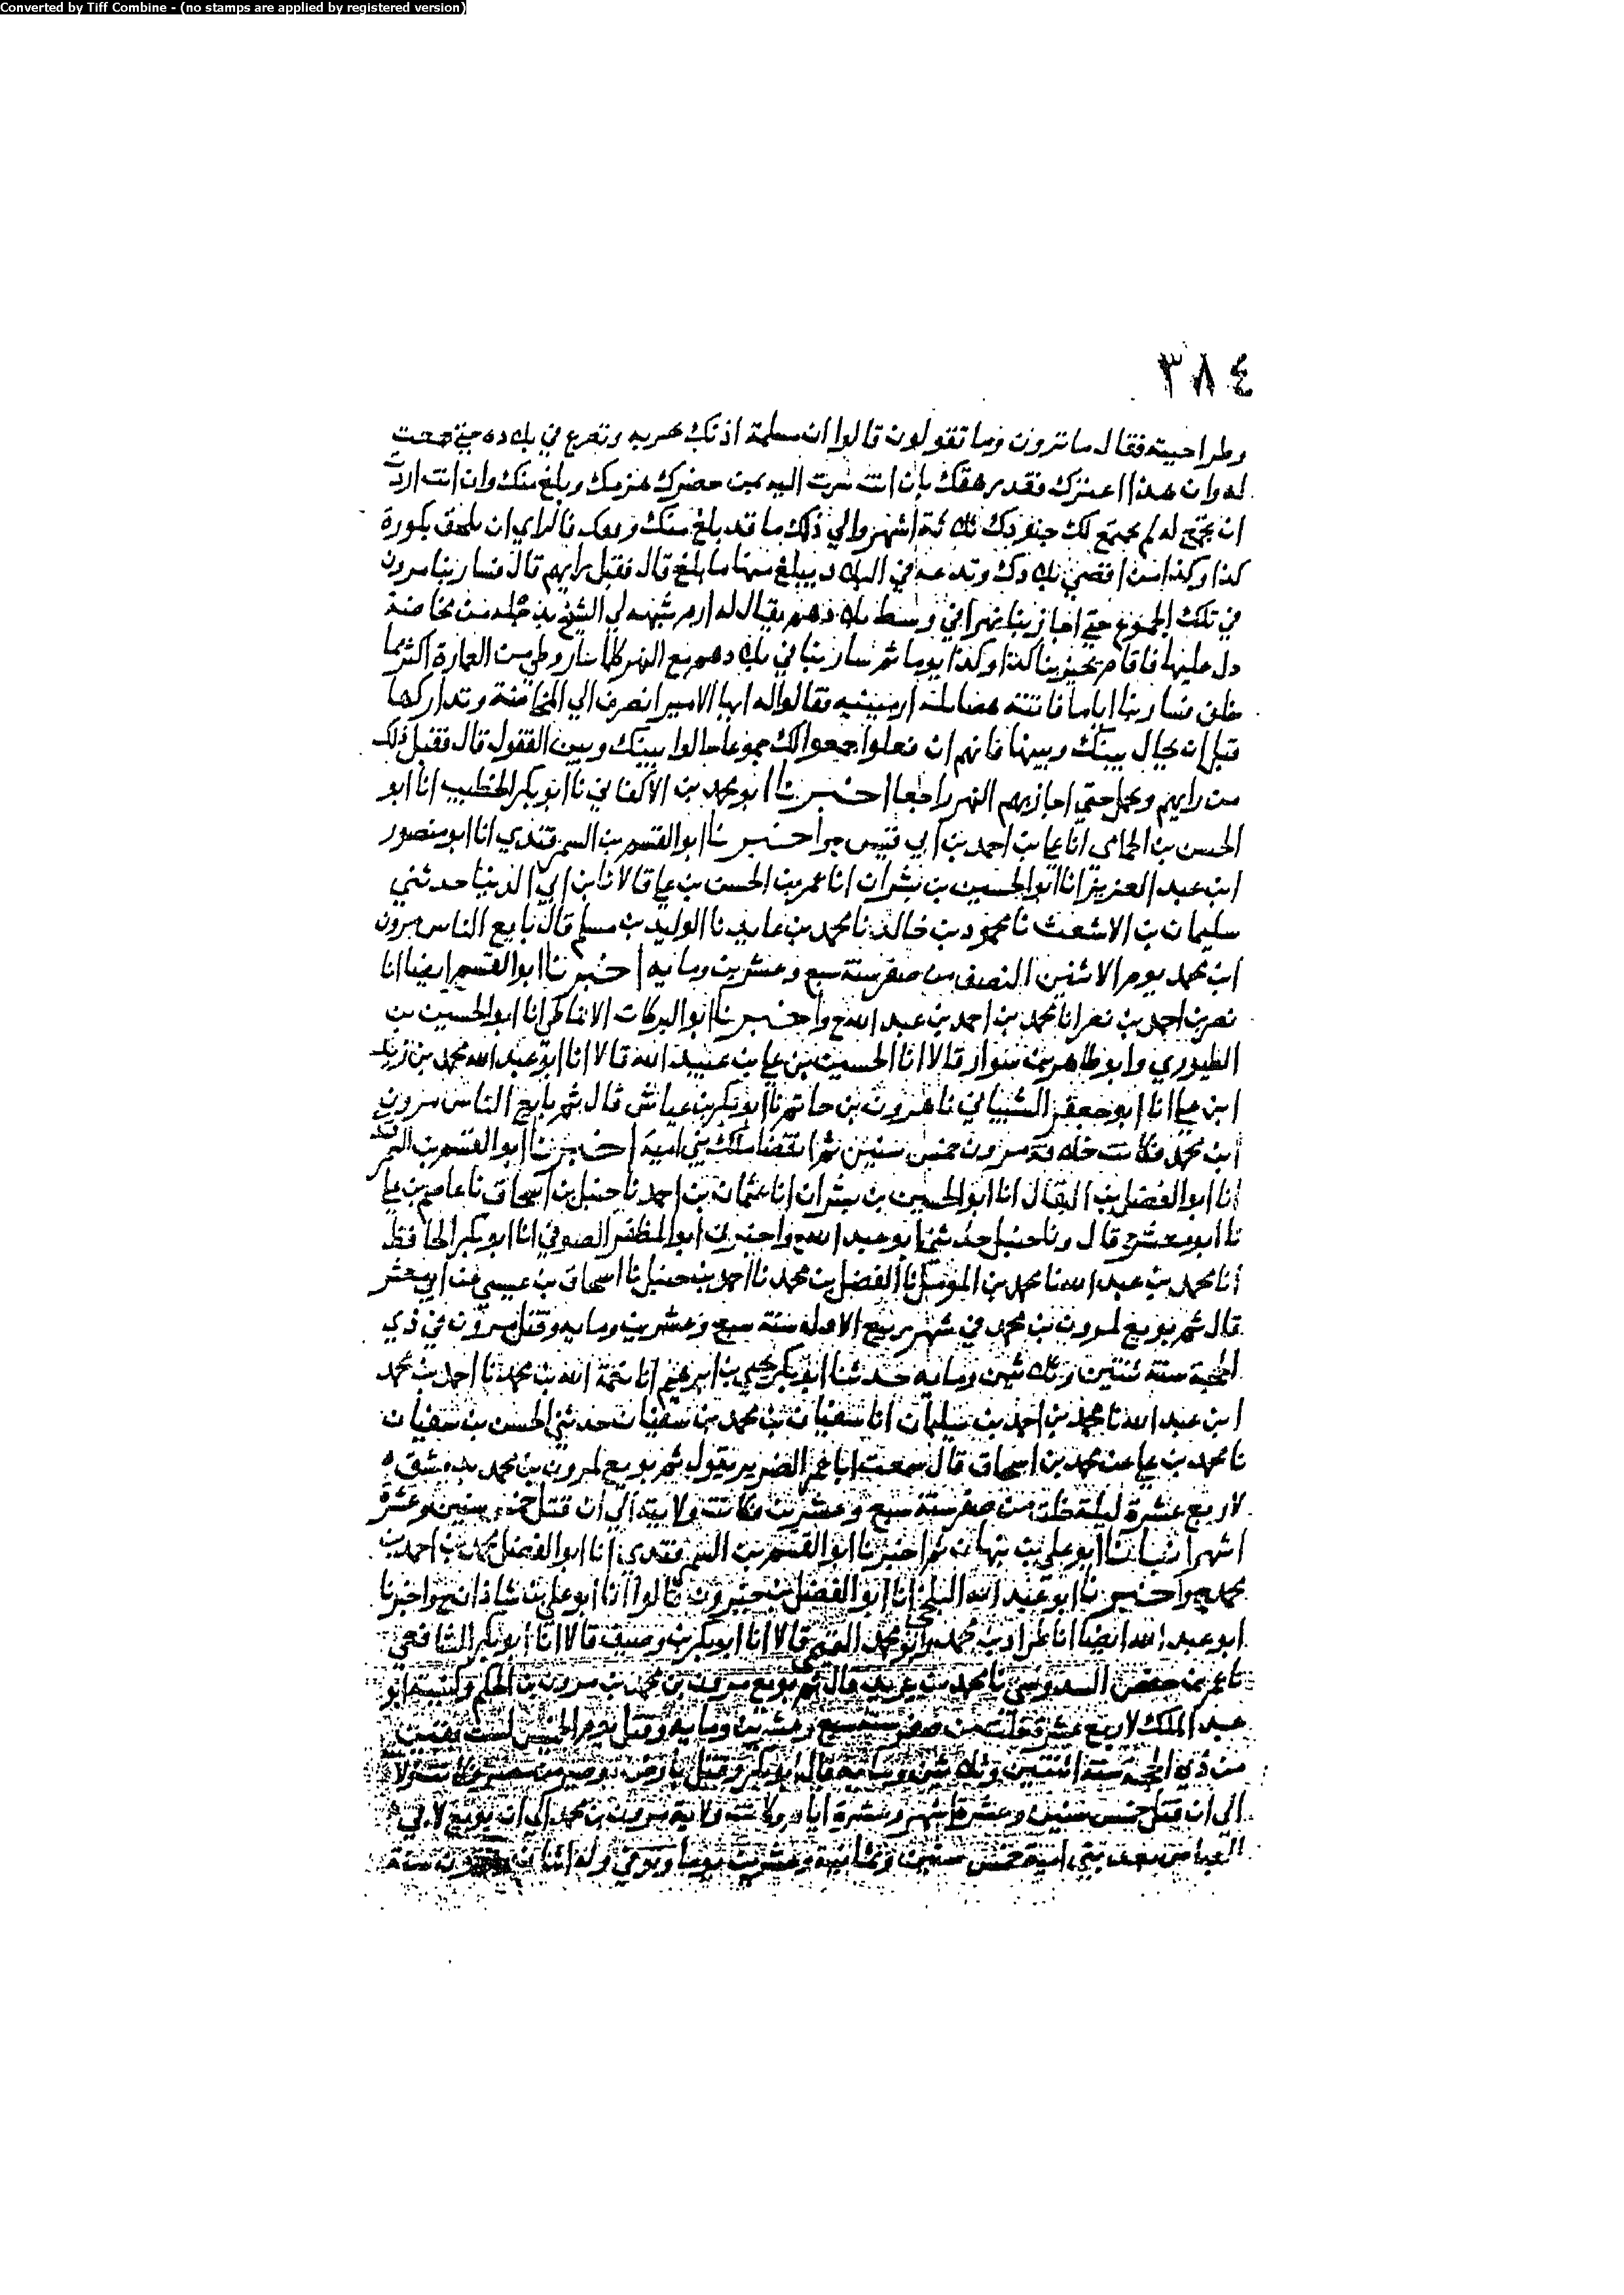 Converted by Tiff Combine - (no stamps are applied by registered version)
٣٨٤
فقال ما ترون وما تقولون قالوا ان مسلمة في بلاده حتى جمعت
له وان هذا فقد رهقك بان انت سرت اليه بمن حضرك هزمك وبلغ منك وان انت اردت
ان لم يجتمع لك جنودك ثلاثة اشهر والي ذلك ما قد بلغ منك فالراي ان تلحق بكورة
كذا وكذا من اقصي بلادك وتدعه في البلاد يبلغ منها ما بلغ قال فقبل رايهم قال فسار بنا مرون
في تلك الجموع حتى اجاز بنا نهرا في وسط بلادهم يقال له من مخاضة
دل عليها فاقام بنا كذا وكذا يوما ثم سار بنا في بلادهم مع النهر كلما سار وطي من العمارة اكثر مما
خلف فسار بنا اياما ارمينيه فقالوا له ايها الامير انصرف الي المخاضة وتداركها
قبل ان يحال بينك وبينها فانهم ان فعلوا جمعوا لك جموعا حالوا بينك وبين القفول قال فقبل ذلك
من رايهم وعجل حتى اجاز بهم النهر راجعا اخبرنا ابو محمد بن الاكفاني نا ابو بكر الخطيب انا ابو
الحسن بن الحمامي انا علي بن احمد بن ابي قيس ح واخبرنا ابو القسم بن السمرقندي انا ابو منصور
ابن عبد العزيز انا ابو الحسين بن بشران انا عمر بن الحسن بن علي قالا نا ابن ابي الدنيا حدثني
سليمان بن الاشعث نا محمود بن خالد نا محمد بن عايد نا الوليد بن مسلم قال بايع الناس مرون
ابن محمد يوم الاثنين النصف من صفر سنة سبع وعشرين ومايه اخبرنا ابو القسم ايضا انا
نصر بن احمد بن نصر انا محمد بن احمد بن عبد الله ح واخبرنا ابو البركات الانماطي انا ابو الحسين بن
الطيوري وابو طاهر بن سوار قالا انا الحسين بن علي بن عبيد الله قالا انا ابو عبد الله محمد بن زيد
ابن علي انا ابو جعفر الشيباني نا هرون بن حاتم نا ابو بكر بن عياش قال ثم بايع الناس مرون
ابن محمد فكانت خلافة مرون خمس سنين ثم انقضا ملك بني امية اخبرنا ابو القسم بن السمرقندي
انا ابو الفضل بن البقال انا ابو الحسين بن بشران انا عثمان بن احمد نا حنبل بن اسحاق نا عاصم بن علي
نا ابو معشر ح قال ونا حنبل حدثني ابو عبد الله ح واخبرنا ابو المظفر الصوفي انا ابو بكر الحافظ
انا محمد بن عبد الله نا محمد بن المؤمل نا الفضل بن محمد نا احمد بن حنبل نا اسحاق بن عيسي عن ابي معشر
قال ثم بويع لمرون بن محمد في شهر ربيع الاول سنة سبع وعشرين ومايه وقتل مرون في ذي
الحجة سنة ثنتين وثلاثين ومايه حدثنا ابو بكر يحيي بن ابرهيم انا نعمة الله بن محمد نا احمد بن محمد
ابن عبد الله نا محمد بن احمد بن سليمان انا سفيان بن محمد بن سفيان حدثني الحسن بن سفيان
نا محمد بن علي عن محمد بن اسحاق قال سمعت ابا عمر الضرير يقول ثم بويع لمرون بن محمد بدمشق
لاربع عشرة ليلة خلت من صفر سنة سبع وعشرين فكانت ولايته الي ان قتل خمس سنين وعشرة
اشهر انبانا ابو علي بن نبهان ثم اخبرنا ابو القسم بن السمرقندي انا ابو الفضل محمد بن احمد بن
محمد ح واخبرنا ابو عبد الله البلخي انا ابو الفضل بن خيرون قالوا انا ابو علي بن شاذان ح واخبرنا
ابو عبد الله ايضا انا طراد بن محمد وابو محمد التميمي قالا انا ابو بكر بن وصيف قالا انا ابو بكر الشافعي
نا عمر بن حفص السدوسي نا محمد بن يزيد قال ثم بويع مرون بن محمد بن مرون بن الحكم وكنيته ابو
عبد الملك لاربع عشرة خلت من صفر سنة سبع وعشرين ومايه وقتل يوم الخميس لست بقين
من ذي الحجة سنة اثنتين وثلاثين ومايه قال ابو بكر وقتل بارض بوصير من مصر وكانت ولا
الي ان قتل خمس سنين وعشرة اشهر وعشرة ايام وكانت ولاية مرون بن محمد الي ان بويع لابي
العباس بعد بني امية خمس سنين وثمانية وعشرين يوما وتوفي وله اثنان سنة